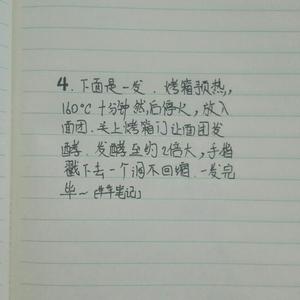 4.下面是一发.烤箱预热,
160°C十分钟然后停火,放入
面团.关上烤箱门让面团发
酵.发酵至约2倍大,手指
戳下去一个洞不回缩.一发完
毕~